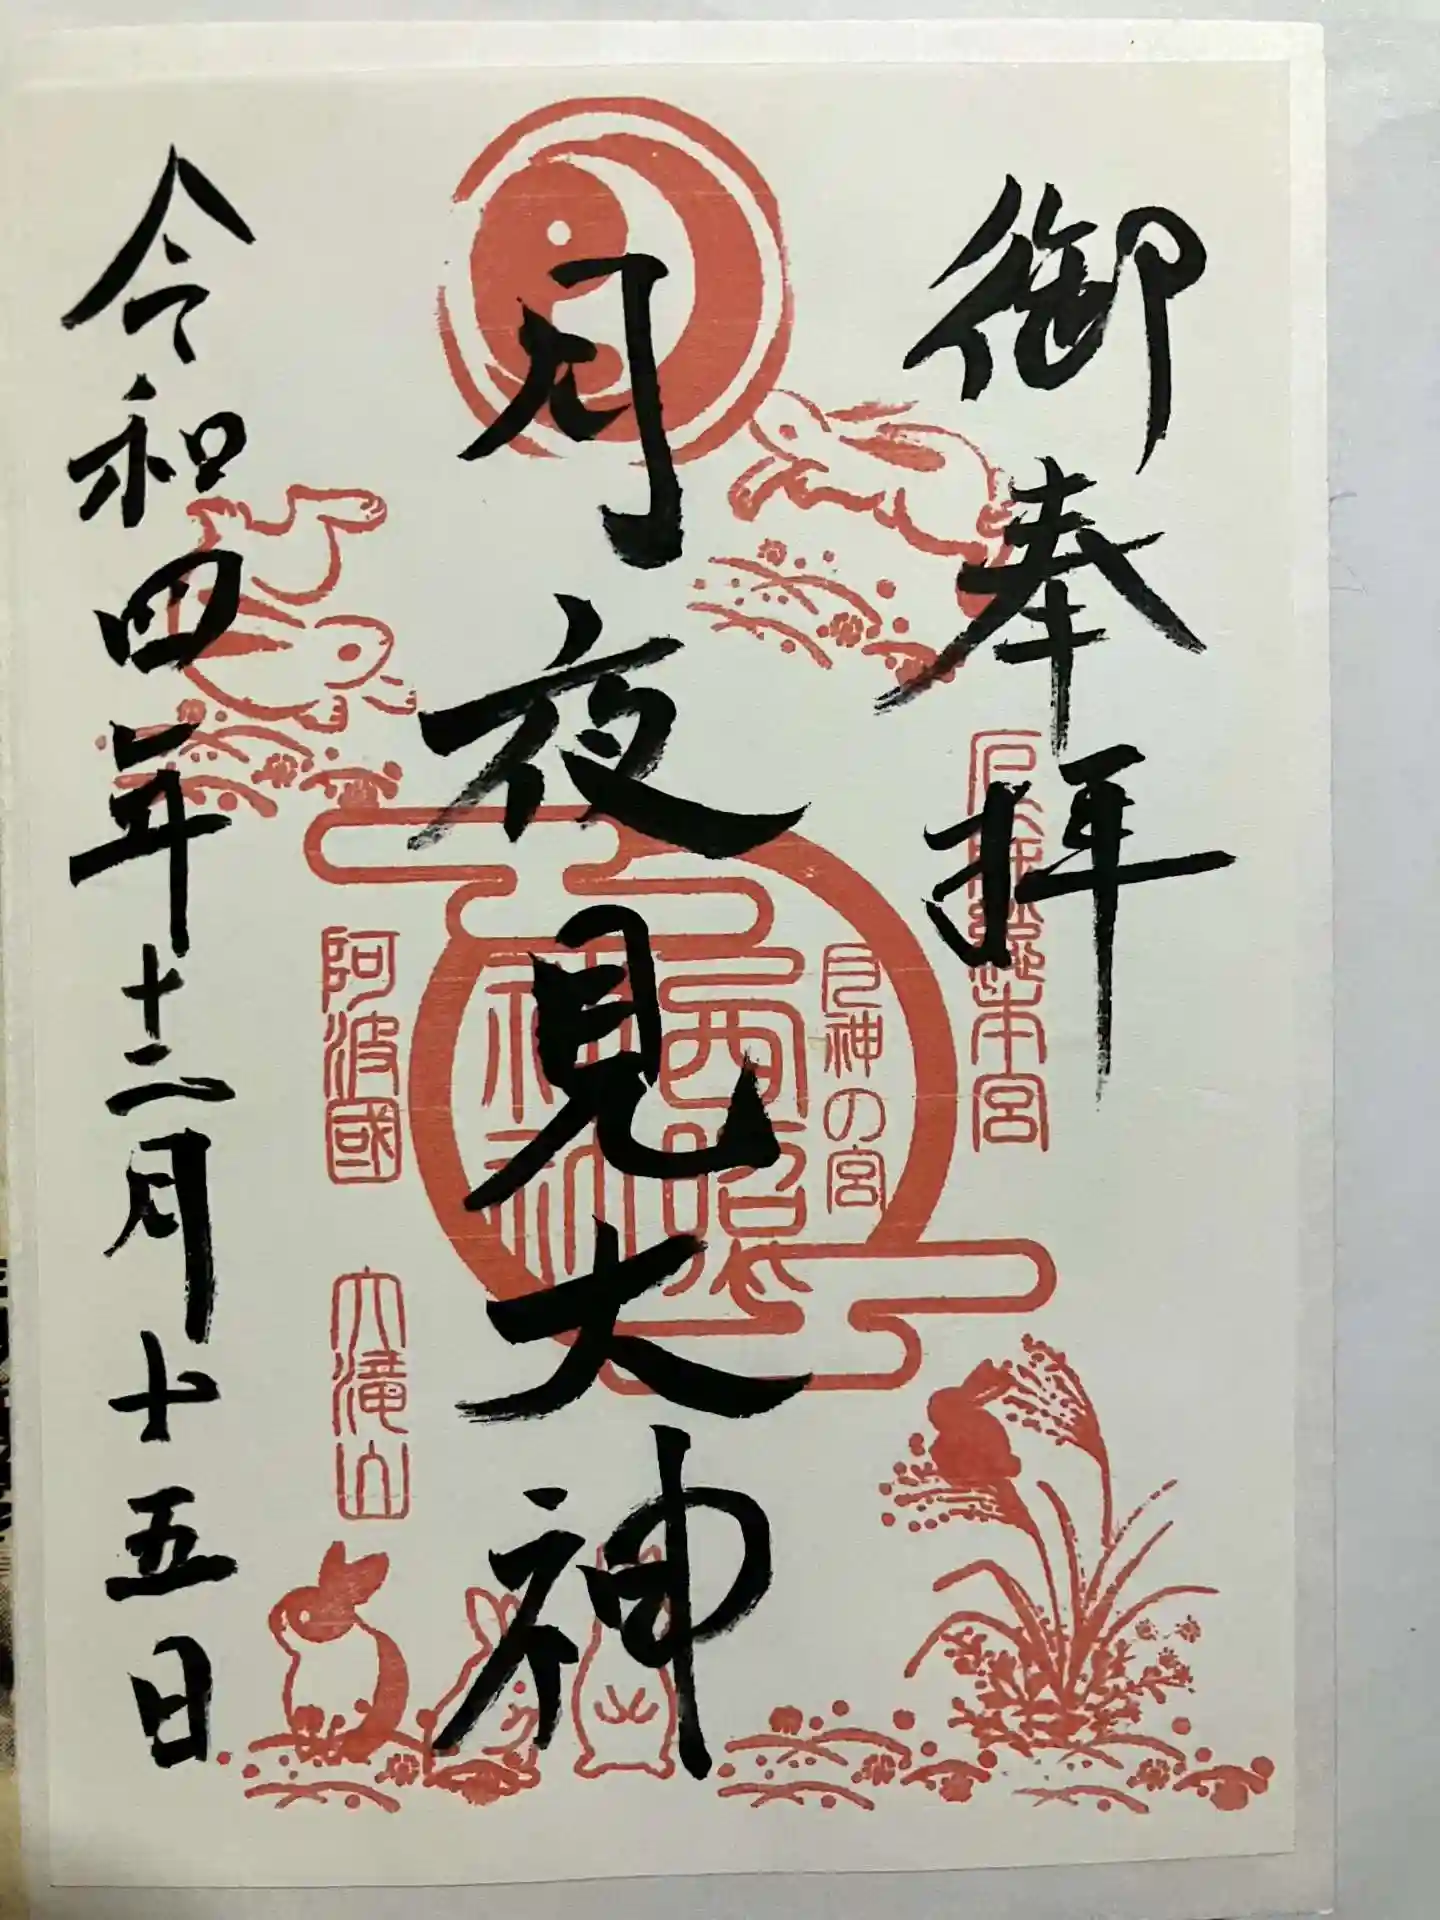 御奉拝
総本宮
月夜見大神
月神の宮
西照
神社
阿波國
大滝山
令和四年十二月十五日